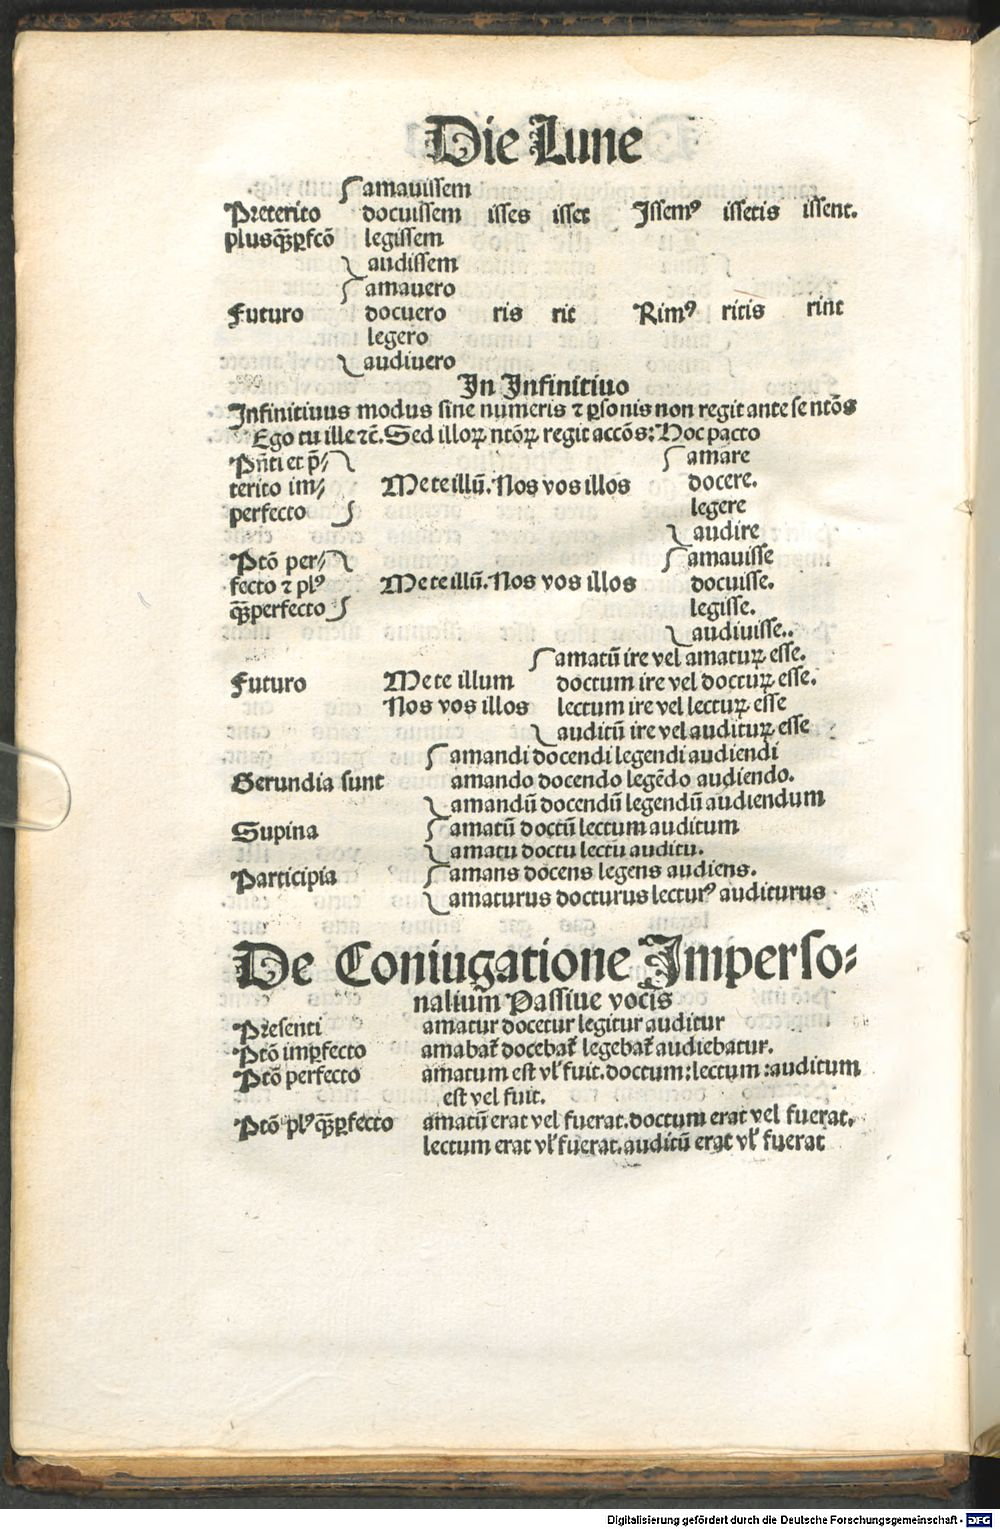 Die Lune
amauissem
Preterito docuissem isses isset Issemꝰ issetis issent.
plusqꝫꝑfcō legissem
audissem
amauero
Futuro docuero ris rit Rimꝰ ritis rint
legero
audiuero
In Infinitiuo
Infinitiuus modus sine numeris ⁊ ꝑsonis non regit ante se ntōs
Ego tu ille ⁊c̄. Sed illoꝝ ntōꝝ regit accōs: Hoc pacto
Pn̄ti et p̄⸗ amare
terito im⸗ Me te illū. Nos vos illos docere.
perfecto legere
audire
Ptō per⸗ amauisse
fecto ⁊ plꝰ Me te illū. Nos vos illos docuisse.
qꝫperfecto legisse.
audiuisse..
amatū ire vel amatuꝝ esse.
Futuro Me te illum doctum ire vel doctuꝝ esse.
Nos vos illos lectum ire vel lectuꝝ esse
auditū ire vel audituꝝ esse
amandi docendi legendi audiendi
Gerundia sunt amando docendo legēdo audiendo.
amandū docendū legendū audiendum
Supina amatū doctū lectum auditum
amatu doctu lectu auditu.
Participia amans docens legens audiens.
amaturus docturus lecturꝰ auditurus
De Coniugatione Imperso⸗
nalium Passiue vocis
Presenti amatur docetur legitur auditur
Ptō imꝑfecto amabat᷑ docebat᷑ legebat᷑ audiebatur.
Ptō perfecto amatum est vl̓ fuit. doctum: lectum: auditum
est vel fuit.
Ptō plꝰqꝫꝑfecto amatū erat vel fuerat. doctum erat vel fuerat.
lectum erat vl̓ fuerat. auditū erat vl̓ fuerat
Digitalisierung gefördert durch die Deutsche Forschungsgemeinschaft - DFG